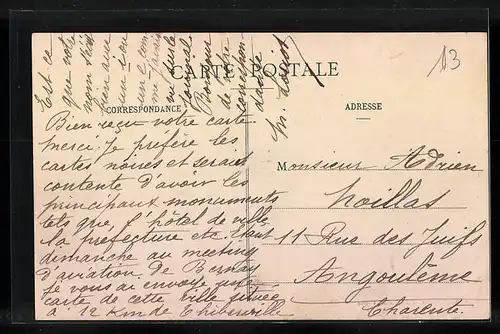 13
CARTE POSTALE
CORRESPONDANCE
ADRESSE
Est ce
que votre
nom s'écrit
bien avec
un ou
Bonjour
de votre
correspon-
dante
Bien reçu votre carte
merci. Je préfère les
cartes noires et serais
contente d'avoir les
principaux monuments
tels que, l'hôtel de ville
la préfecture etc. Etant
dimanche au meeting
d'aviation de Bernay
je vous ai envoyé une
carte de cette ville située
à 12 Km de Thiberville
Monsieur Adrien
Noillas
11 Rue des Juifs
Angoulême
Charente.